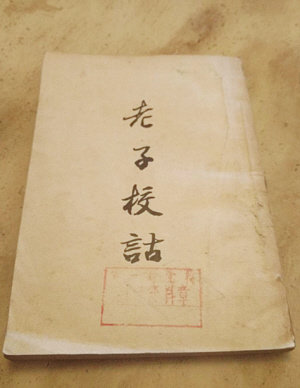 老子校詁